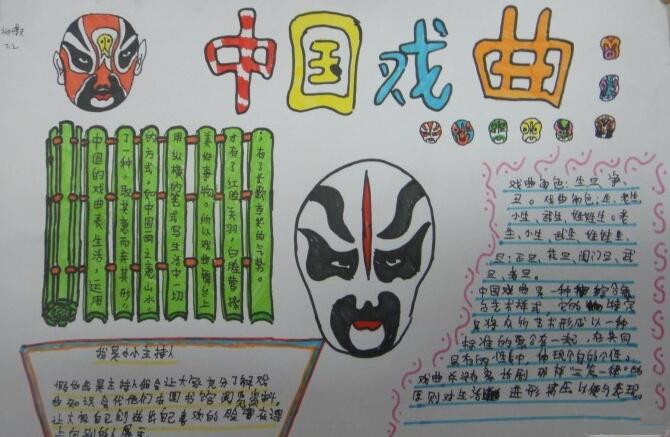 7.2
中国戏曲
中国的戏曲表生活,运用
了一种取其意而弃其形,
的方式,如中国画之意山水,
用纵横的笔式写生活中一切
美好事物。所以戏曲舞台上
才有了红脸关羽,白脸曹操
;有了长歌当哭的气势。
戏曲角色:生旦净
丑。戏曲角色,生:老生
小生、武生、娃娃生。老
生、小生、武生、娃娃生
旦:正旦、花旦、闺门旦、武
旦、老旦。
中国戏曲是一种综合舞
台艺术样式,它的特点
是将众的艺术形成以一种
标准的聚合在一起,在共同
具有的性中体现个自的个性。
戏曲
原则对生活进形
我是小小主持人
假如我是主持人我会让大家充分了解戏
曲知识会代他们去图书馆阅览资料,
让大家自己创做出自己喜欢的脸谱在课
上向别的人展示